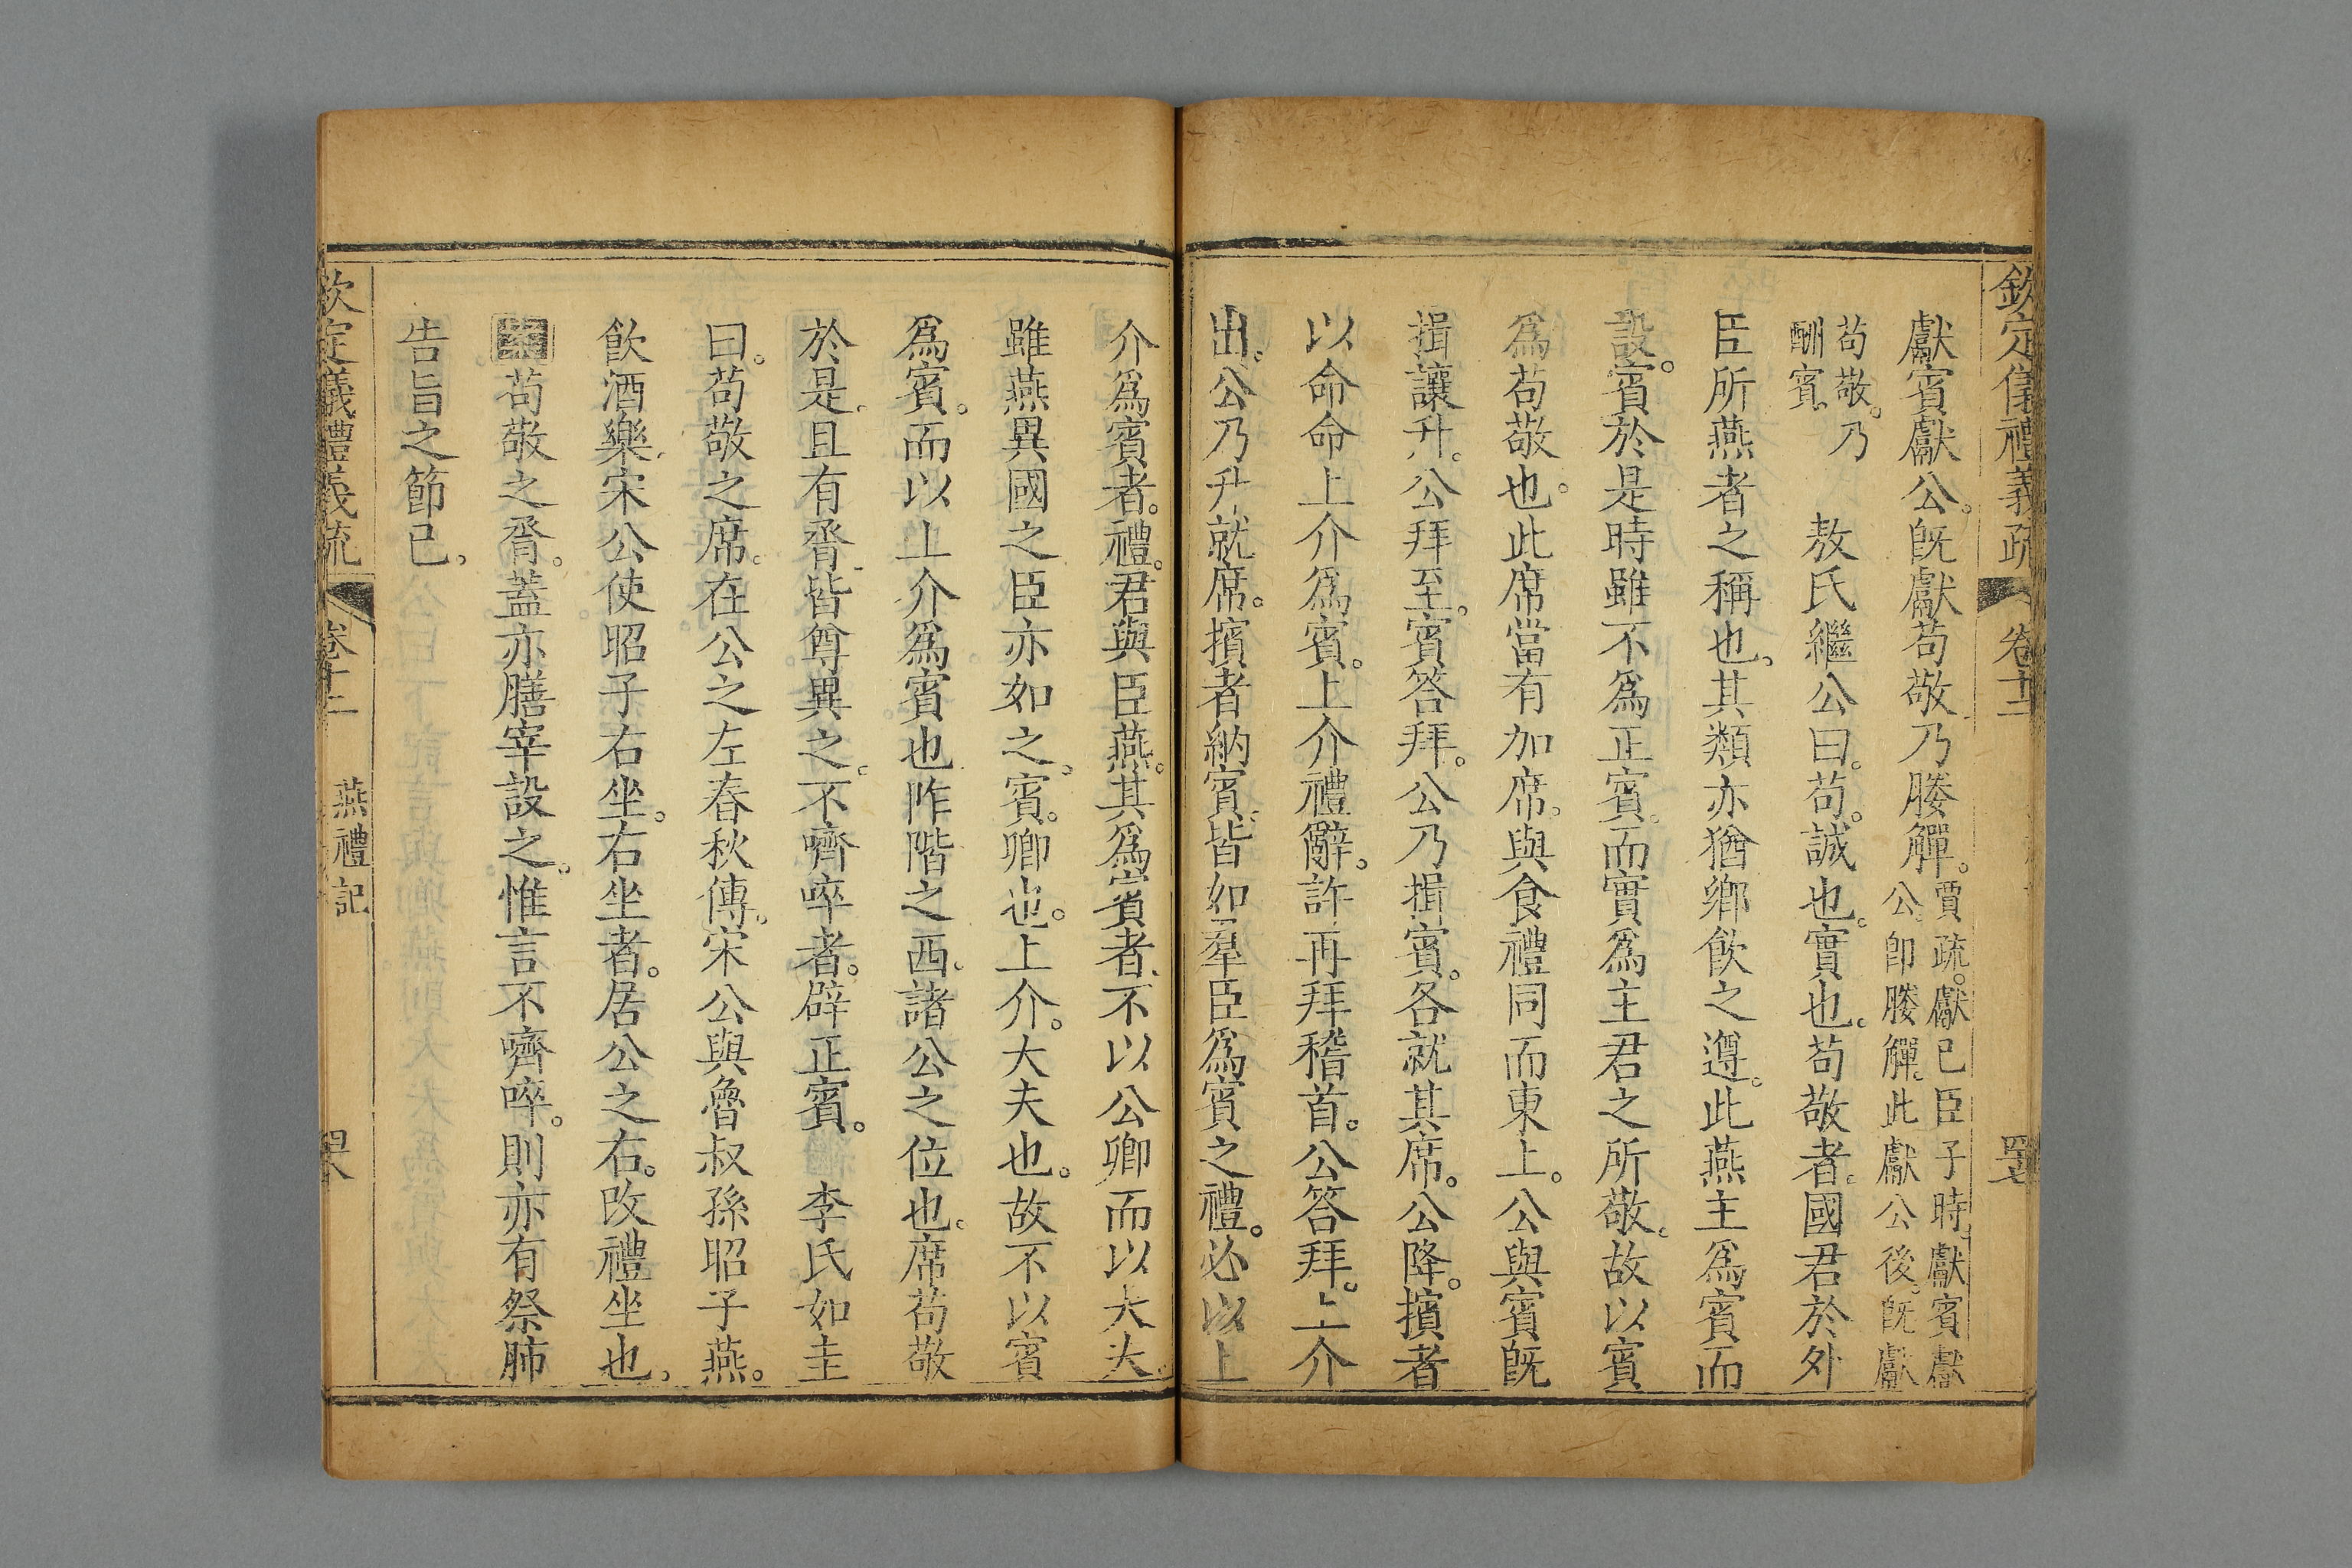 欽定儀禮義疏 卷十二
獻賓獻公。既獻苟敬乃媵觶。賈疏。獻已臣子時。獻賓獻
公。卽媵觶。此獻公後。既獻
苟敬。乃
酬賓。
敖氏繼公曰。苟。誠也。實也。苟敬者。國君於外
臣所燕者之稱也。其類亦猶鄉飲之遵。此燕主爲賓而
設。賓於是時雖不爲正賓。而實爲主君之所敬。故以賓
爲苟敬也。此席當有加席。與食禮同而東上。公與賓既
揖讓升。公拜至。賓答拜。公乃揖賓。各就其席。公降。擯者
以命命上介爲賓。上介禮辭。許。再拜稽首。公答拜。上介
出。公乃升就席。擯者納賓。皆如羣臣爲賓之禮。必以上
介爲賓者。禮。君與臣燕。其爲賓者。不以公卿而以大夫。
雖燕異國之臣亦如之。賓。卿也。上介。大夫也。故不以賓
爲賓。而以上介爲賓也。阼階之西。諸公之位也。席苟敬
於是。且有脀。皆尊異之。不嚌啐者。辟正賓。 李氏如圭
曰。苟敬之席。在公之左。春秋傳。宋公與魯叔孫昭子燕。
飲酒樂。宋公使昭子右坐。右坐者。居公之右。改禮坐也。
苟敬之脀。蓋亦膳宰設之。惟言不嚌啐。則亦有祭肺
告旨之節已。
欽定儀禮義疏 卷十二 燕禮記